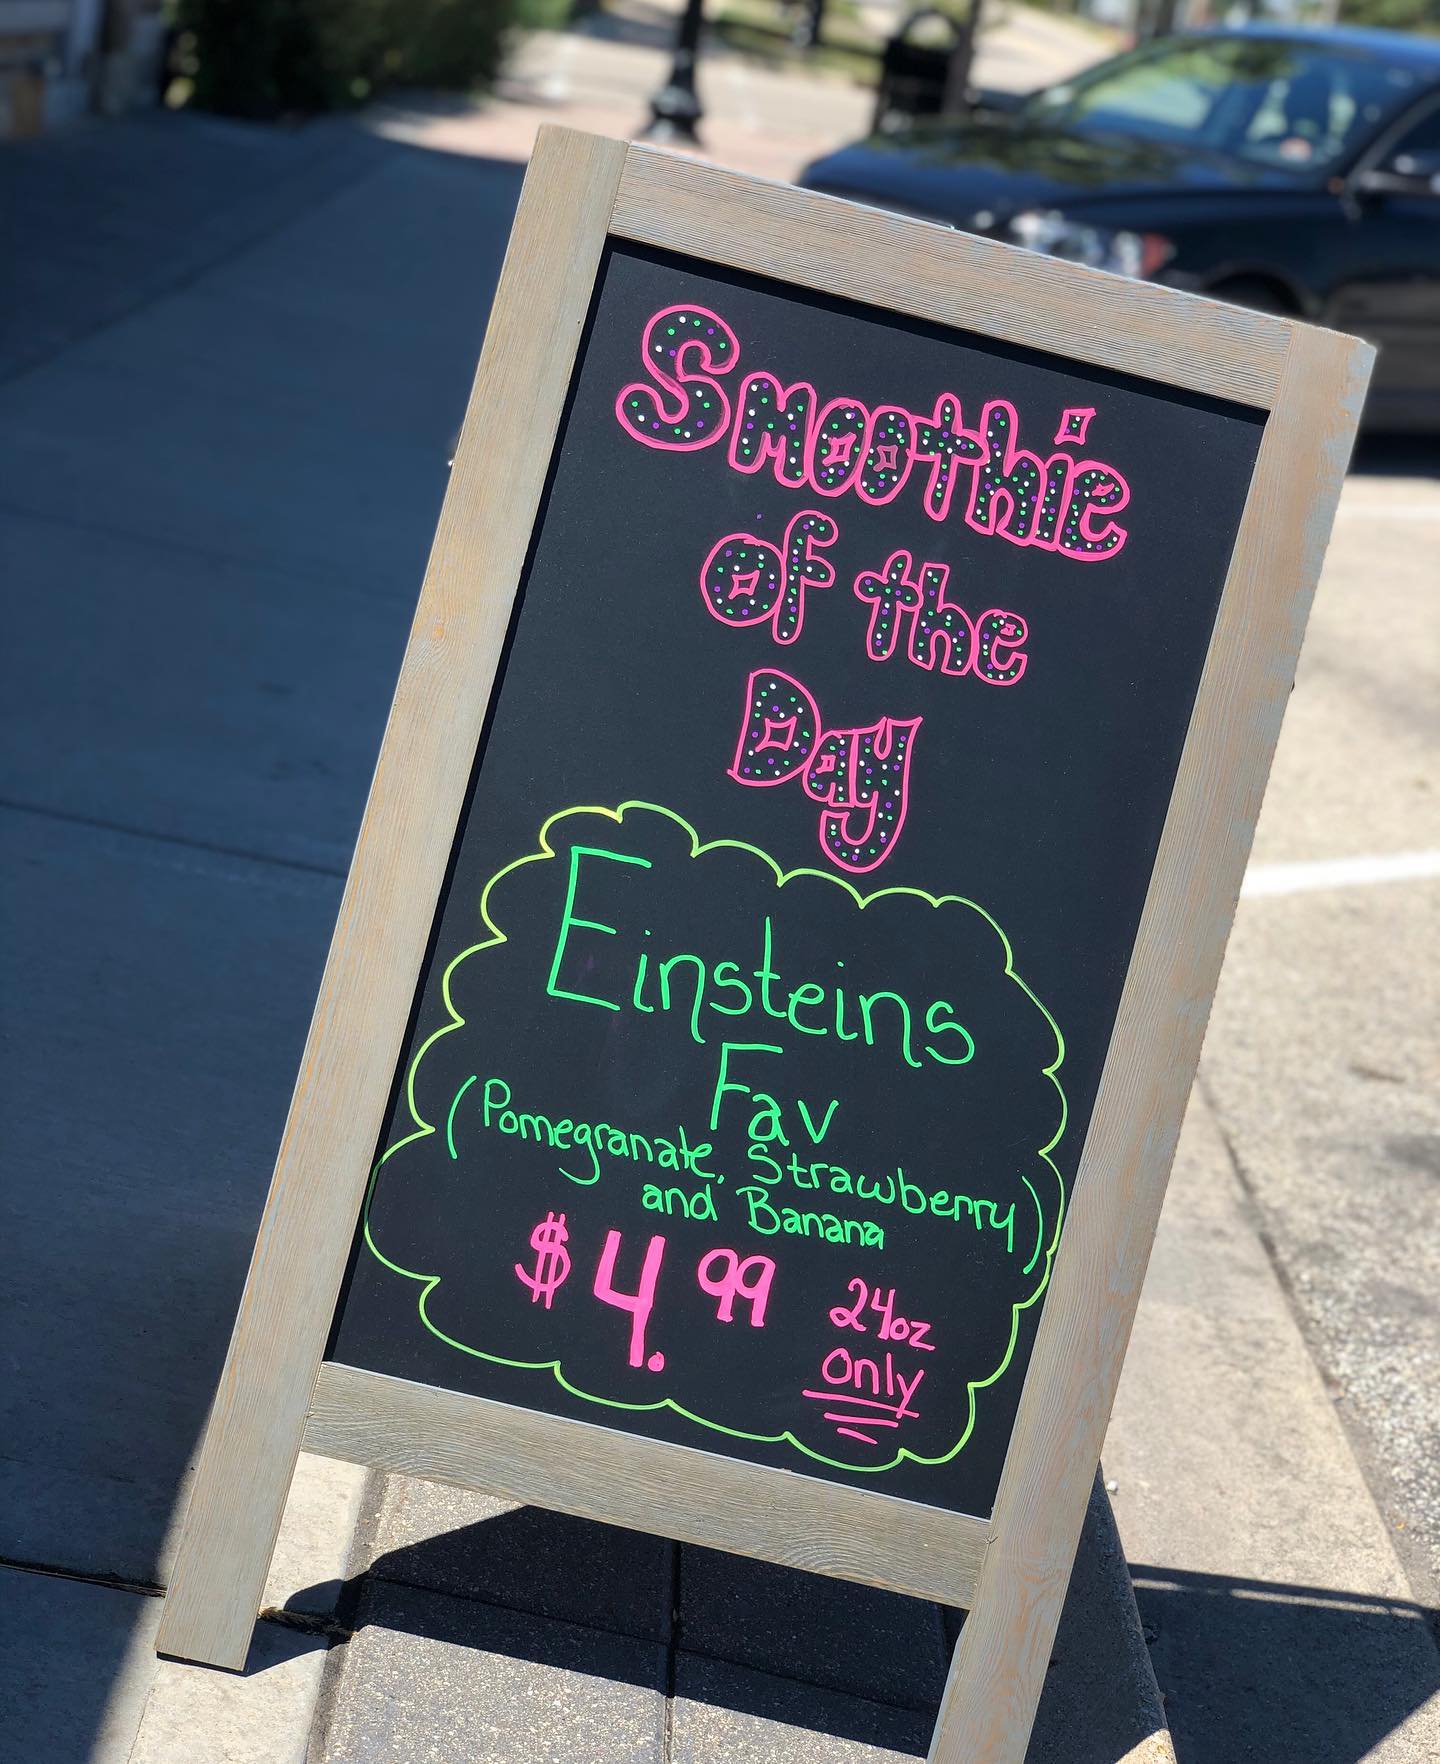 Smoothie
of the
Day
Einsteins
Fav
(Pomegranate, Strawberry)
and Banana
$4.99 24oz
only